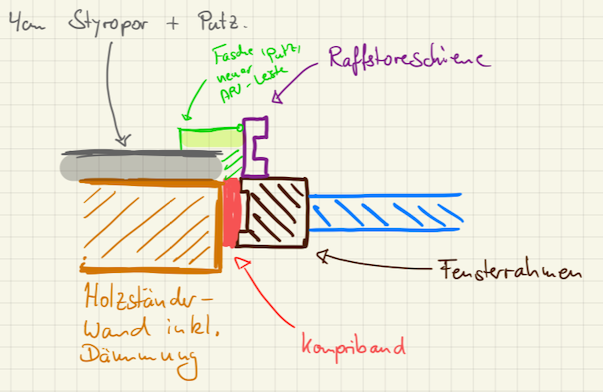 4cm Styropor + Putz.
Fasche, Putz,
neuer
APU-Leiste
Raffstoreschiene
Fensterrahmen
Holzständer-
wand inkl.
Dämmung
Kompriband